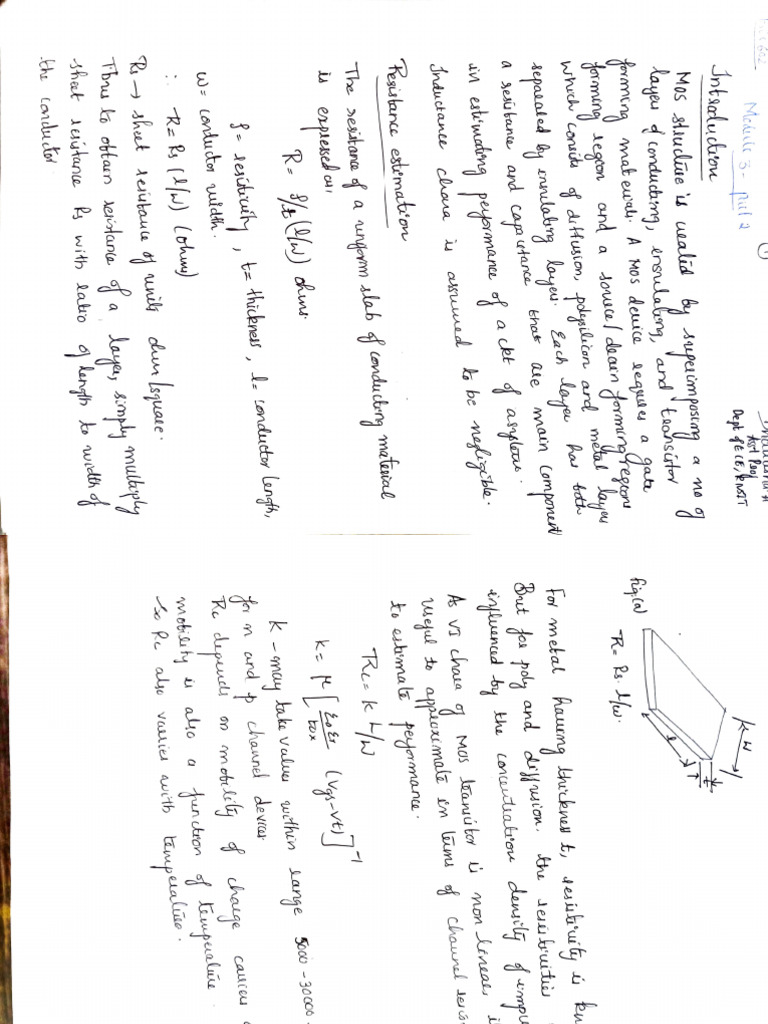 Module 3 - part 2
Asst Prof
Dept of ECE, KNSIT
Introduction
MOS structure is created by superimposing a no of
layers of conducting, insulating, and transistor
forming materials. A MOS device requires a gate
forming region and a source/drain forming regions
which consists of diffusion, polysilicon and metal layers
separated by insulating layers. Each layer has both
a resistance and capacitance that are main component
in estimating performance of a ckt of a system.
Inductance chara is assumed to be negligible.
Resistance estimation
The resistance of a uniform slab of conducting material
is expressed as,
R = ρ/t (l/w) ohms.
ρ = resistivity, t = thickness, l = conductor length,
w = conductor width.
∴ R = Rs (l/w) (ohms)
Rs → sheet resistance of units ohm/square.
Thus to obtain resistance of a layer, simply multiply
sheet resistance Rs with ratio of length to width of
the conductor.
w
t
l
fig (a)
R = Rs. l/w.
For metal having thickness t, resistivity is
But for poly and diffusion. the resistivities
influenced by the concentration density of
As VI chara of MOS transistor is non linear,
useful to approximate in terms of channel
to estimate performance.
Rc = k L/W
k = μ [ εoεr/tox (Vgs-Vt) ]⁻¹
k - may take values within range 5000 - 30000
for n and p channel devices.
Rc depends on mobility of charge carriers
mobility is also a function of temperature.
So Rc also varies with temperature.